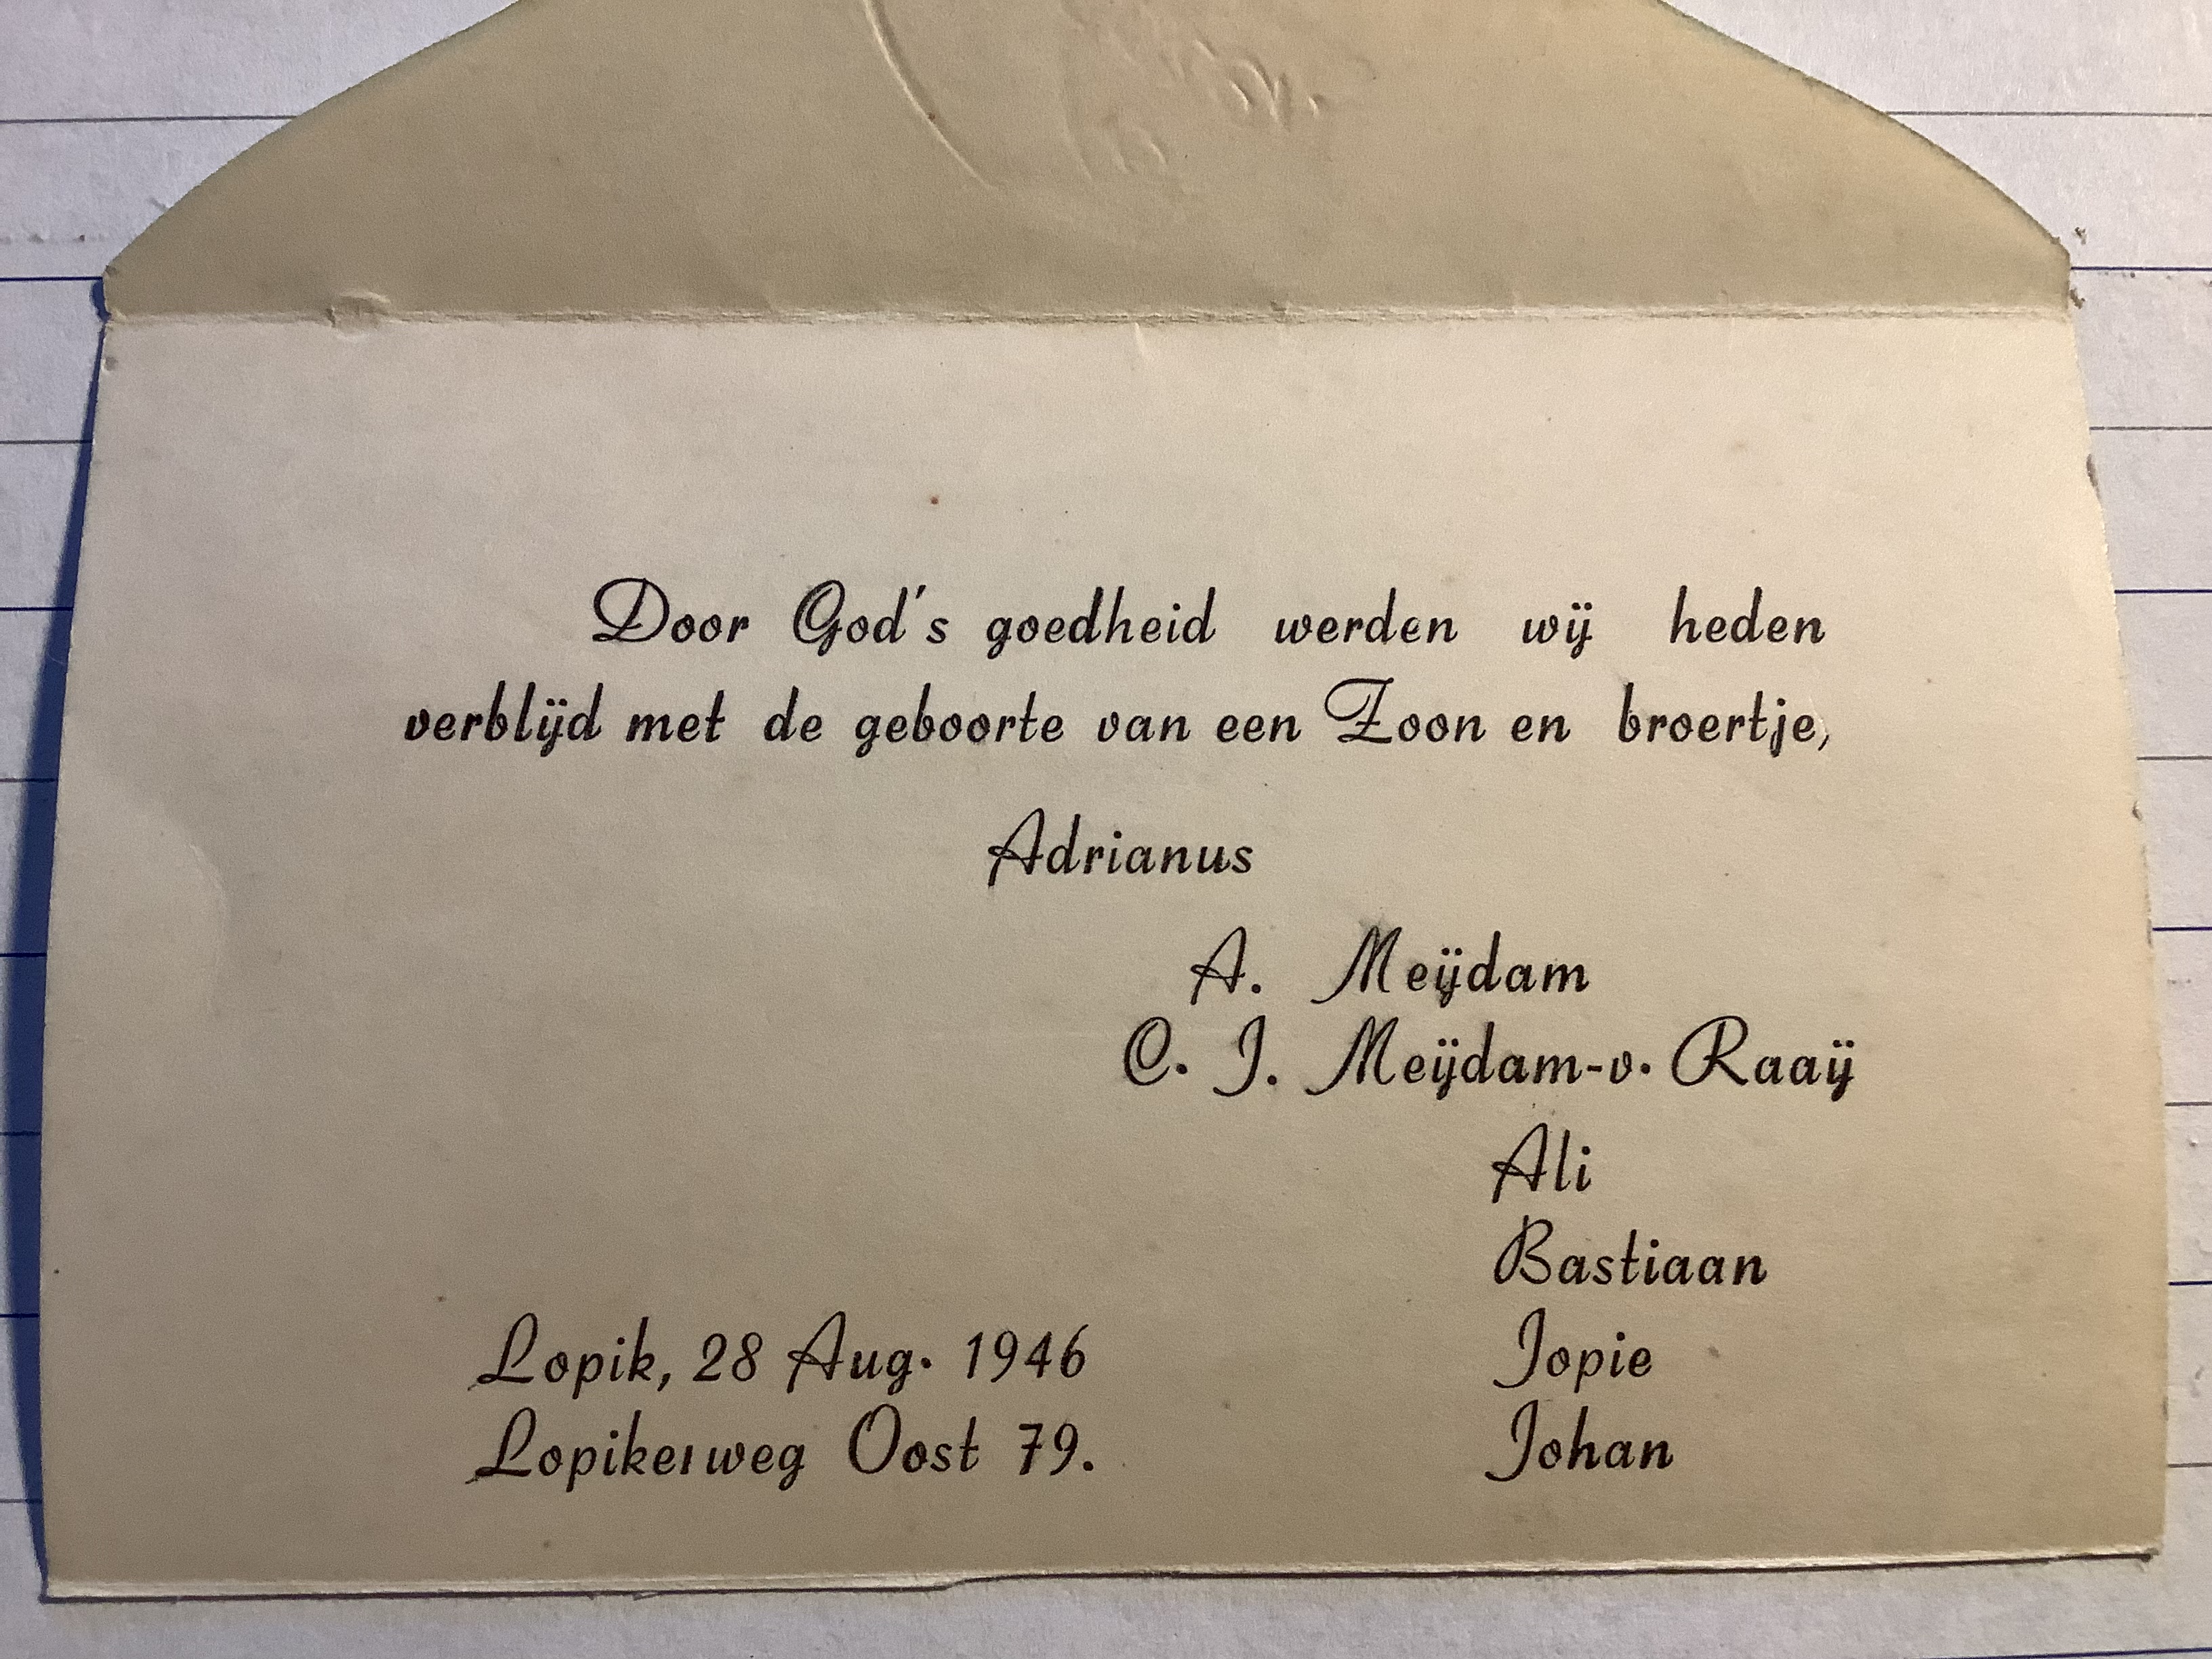 Door God's goedheid werden wij heden
verblijd met de geboorte van een Zoon en broertje,
Adrianus
A. Meijdam
C. J. Meijdam-v. Raaij
Ali
Bastiaan
Jopie
Johan
Lopik, 28 Aug. 1946
Lopikerweg Oost 79.